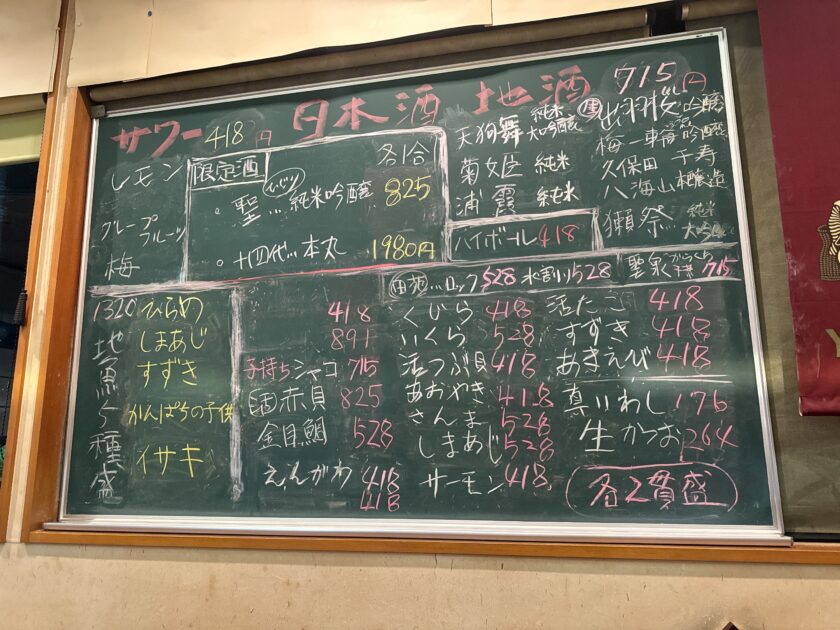 サワー 418円
レモン
グレープフルーツ
梅
日本酒 地酒 715円
限定酒 各1合
・聖(ひじり)…純米吟醸 825
・十四代…本丸 1980円
天狗舞 純米大吟醸
菊姫 純米
浦霞 純米
ハイボール 418
出羽桜 吟醸
梅一輪 吟醸
久保田 千寿
八海山 本醸造
獺祭 純米大吟醸
…ロック528 水割り528
715
1320 地魚5種盛
ひらめ
しまあじ
すずき
かんぱちの子供
イサキ
418
891
子持ちシャコ 715
赤貝 825
金目鯛 528
えんがわ 418
418
くじら 418
いくら 528
活つぶ貝 418
あおやぎ 418
さんま 528
しまあじ 528
サーモン 418
活たこ 418
すずき 418
あまえび 418
真いわし 176
生かつお 264
各2貫盛